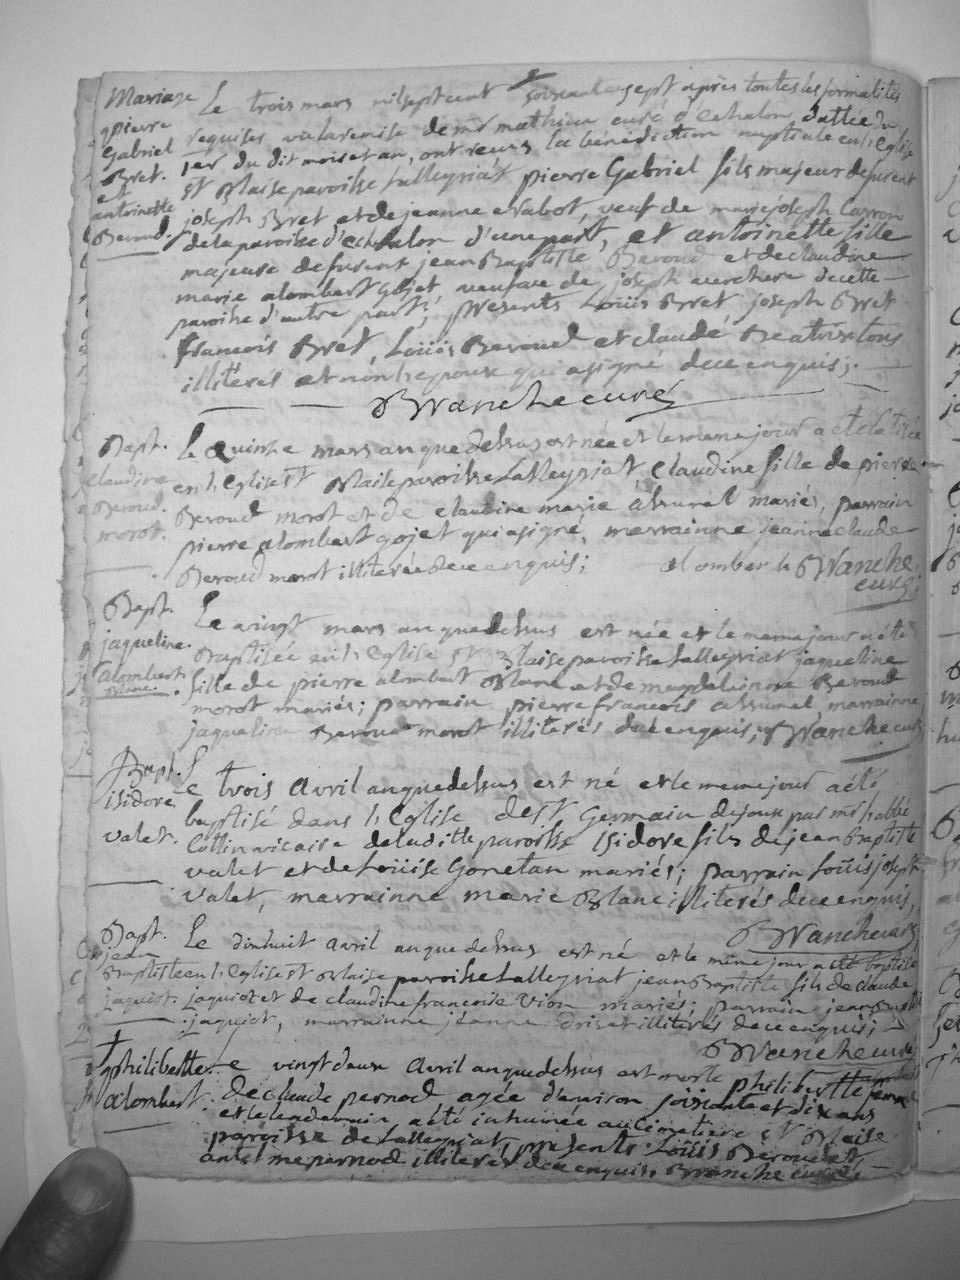 Mariage
pierre
Gabriel
Bret.
et
antoinette
Beroud.
Le trois mars mil sept cent soixante sept après toutes les formalités
requises vu la remise de mr mathieu curé d'Echalon, dattée du
1er du dit mois et an, ont receus la bénédiction nuptiale en l'Eglise
st Blaise paroisse Lalleyriat pierre Gabriel fils majeur defurent
joseph Bret et de jeanne nabot, veuf de marie joseph Carron
de la paroisse d'Echalon d'une part, et antoinette fille
majeure defurent jean Baptiste Beroud et de claudine
marie alombert gojet veufve de joseph vuerchere de cette
paroisse d'autre part; presents Loüis Bret joseph Bret
francois Bret, Loüis Beroud et claude Beatrix tous
illiterés et non l'epoux qui a signé de ce enquis;
B Vanche curé
Bapt.
claudine
Beroud.
morot.
Le Quinze mars an que dessus est née et le meme jour a eté batisée
en l'Eglise st Blaise paroisse Lalleyriat Claudine fille de pierre
Beroud morot et de claudine marie assunel mariés, parrain
pierre alombert gojet qui a signé, marrainne jeanne claude
Beroud morot illiterée de ce enquis; alomber B Vanche
curé;
Bapt.
jaqueline
alombert
Blanc.
Le vingt mars an que dessus est née et le meme jour a été
Baptisée en l'Eglise st Blaise paroisse Lalleyriat jaqueline
fille de pierre alombert Blanc et de magdelainne Beroud
morot mariés; parrain pierre francois assunel marrainne
jaqueline Beroud morot illiterés de ce enquis; B Vanche curé
Bapt.
isidore
valet.
Le trois avril an que dessus est né et le meme jour a été
baptisé dans l'Eglise de st Germain de joux par mr l'abbé
Collin vicaire de la ditte paroisse Isidore fils de jean Baptiste
valet et de Loüise Gonetan mariés; parrain Loüis joseph
valet, marrainne marie Blanc illiterés de ce enquis,
B Vanche curé
Bapt.
jean
Baptiste
jaquiot.
Le dixhuit avril an que dessus est né et le même jour a été baptisé
en l'Eglise st Blaise paroisse Lalleyriat jean Baptiste fils de claude
jaquiot et de claudine francoise Vion mariés; parrain jean Baptiste
jaquiot, marrainne jeanne Brisset illiterés de ce enquis;
B Vanche curé
†
philiberte
alombert.
Le vingt deux avril an que dessus est morte philiberte alombert femme
de claude pernod agée d'environ soixante et dix ans
et le lendemain a été inhumée au cimetiere st Blaise
paroisse de Lalleyriat, presents Loüis Beroud et
antelme pernod illiterés de ce enquis B Vanche curé.